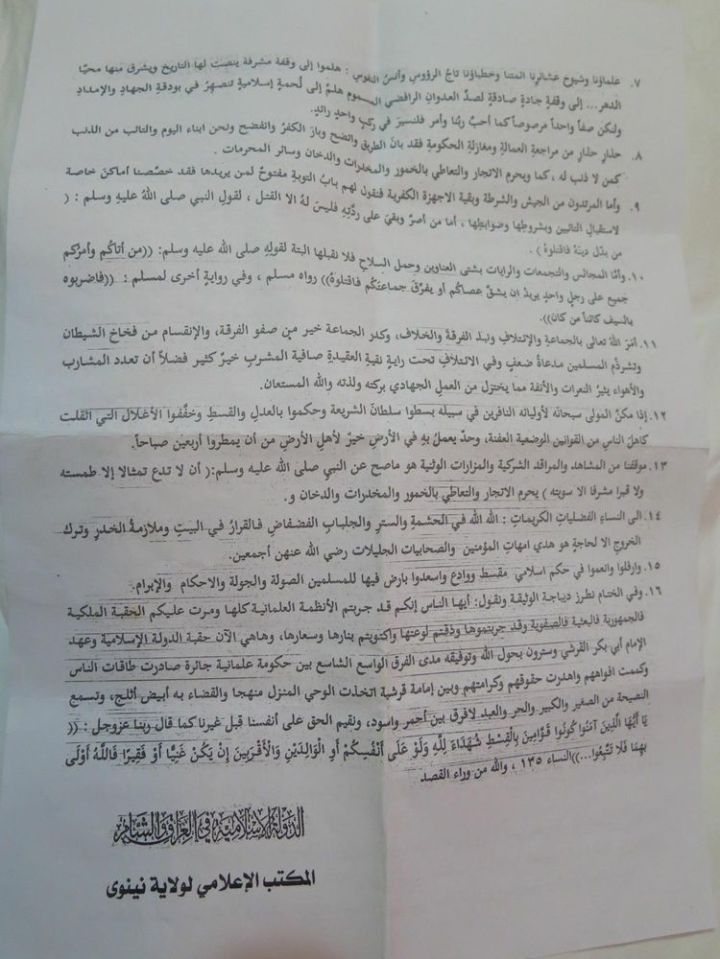 ٧. علماؤنا وشيوخ عشائرنا أئمتنا وخطباؤنا تاجُ الرؤوسِ وأنسُ النفوسِ : هلموا إلى وقفة مشرفة ينصت لها التاريخ ويشرق منها محيّا
الدهر... إلى وقفةٍ جادةٍ صادقةٍ لصدِّ العدوانِ الرافضيِّ المسمومِ هلمَّ إلى لُحمةٍ إسلاميةٍ تنصهرُ في بودقةِ الجهادِ والإمدادِ
ولنكن صفاً واحداً مرصوصاً كما أحبَّ ربُّنا وأمر فلنسيرَ في ركبٍ واحدٍ رائدٍ.
٨. حذارِ حذارِ من مراجعةِ العمالة ومغازلةِ الحكومةِ فقد بانَ الطريق واتضح وبارَ الكفرُ وافتضح ونحن ابناء اليوم والتائب من الذنب
كمن لا ذنب له ، كما ويحرم الاتجار والتعاطي بالخمور والمخدرات والدخان وسائر المحرمات .
٩. وأما المرتدون من الجيش والشرطة وبقية الاجهزة الكفرية فنقول لهم بابُ التوبةِ مفتوحٌ لمن يريدها فقد خصّصنا أماكنَ خاصة
لاستقبالِ التائبين وبشروطها وضوابطها ، أما من أصرَّ وبقيَ على ردَّتِهِ فليسَ لهُ الا القتل ، لقولِ النبي صلى اللهُ عليهِ وسلم : (
من بدّل دينهُ فاقتلوهُ ) .
١٠. وأمّا المجالس والتجمعات والرايات بشتى العناوين وحمل السلاحِ فلا نقبلها البتة لقولهِ صلى الله عليه وسلم: ((من أتاكُم وأمرُكم
جميع على رجلٍ واحدٍ يريدُ ان يشقَّ عصاكُم أو يفرِّقَ جماعتكُم فاقتلوهُ)) رواه مسلم ، وفي روايةٍ أخرى لمسلم : ((فاضربوه
بالسيف كائناً من كان)).
١١. أمَرَ اللهُ تعالى بالجماعةِ والإئتلافِ ونبذ الفرقةُ والخلاف، وكدر الجماعة خير من صفو الفرقة، والإنقسام من فخاخِ الشيطان
وتشرذُم المسلمين مدعاةُ ضعفٍ وفي الائتلافِ تحت رايةٍ نقيةِ العقيدةِ صافيةِ المشربِ خيرٌ كثير فضلاً أن تعدد المشارب
والأهواء يثيرُ النعرات والأنفة مما يختزل من العملِ الجهادي بركته ولذته والله المستعان.
١٢. إذا مكّنَ المولى سبحانهُ لأوليائه النافرين في سبيله بسطوا سلطانَ الشريعة وحكموا بالعدلِ والقسطِ وخفَّفوا الأغلالَ التي أثقلت
كاهلَ الناس من القوانين الوضعية العفنة، وحدٌّ يعملُ بهِ في الأرضِ خيرٌ لأهلِ الأرضِ من أن يمطروا أربعين صباحاً.
١٣. موقفنا من المشاهد والمراقد الشركية والمزارات الوثنية هو ماصح عن النبي صلى الله عليه وسلم:( أن لا تدع تمثالا إلا طمسته
ولا قبرا مشرفا الا سويته ) يحرم الاتجار والتعاطي بالخمور والمخدرات والدخان و.
١٤. الى النساءِ الفضلياتِ الكريماتِ : الله الله في الحشمةِ والسترِ والجلبابِ الفضفاضِ فالقرارُ في البيتِ وملازمةُ الخدرِ وترك
الخروج الا لحاجةٍ هو هدي امهاتِ المؤمنين والصحابياتِ الجليلات رضي الله عنهن أجمعين.
١٥. وارفلوا وانعموا في حكم اسلامي مقسط ووادع واسعدوا بارض فيها للمسلمين الصولة والجولة والاحكام والإبرام.
١٦. وفي الختام نطرز ديباجة الوثيقة ونقول: أيها الناس إنكم قد جربتم الأنظمة العلمانية كلها ومرت عليكم الحقبة الملكية
فالجمهورية فالبعثية فالصفوية وقد جربتموها وذقتم لوعتها واكتويتم بنارها وسعارها، وهاهي الآن حقبة الدولة الإسلامية وعهد
الإمام أبي بكر القرشي وسترون بحول الله وتوفيقه مدى الفرق الواسع الشاسع بين حكومة علمانية جائرة صادرت طاقات الناس
وكممت افواههم واهدرت حقوقهم وكرامتهم وبين إمامة قرشية اتخذت الوحي المنزل منهجا والقضاء به أبيض أثلج، وتسمع
النصيحة من الصغير والكبير والحر والعبد لافرق بين أحمر واسود، ونقيم الحق على أنفسنا قبل غيرنا كما قال ربنا عزوجل : ((
يَا أَيُّهَا الَّذِينَ آمَنُوا كُونُوا قَوَّامِينَ بِالْقِسْطِ شُهَدَاءَ لِلَّهِ وَلَوْ عَلَى أَنْفُسِكُمْ أَوِ الْوَالِدَيْنِ وَالْأَقْرَبِينَ إِنْ يَكُنْ غَنِيًّا أَوْ فَقِيرًا فَاللَّهُ أَوْلَى
بِهِمَا فَلَا تَتَّبِعُوا...))النساء ١٣٥ ، والله من وراء القصد
الدولة الإسلامية في العراق والشام
المكتب الإعلامي لولاية نينوى